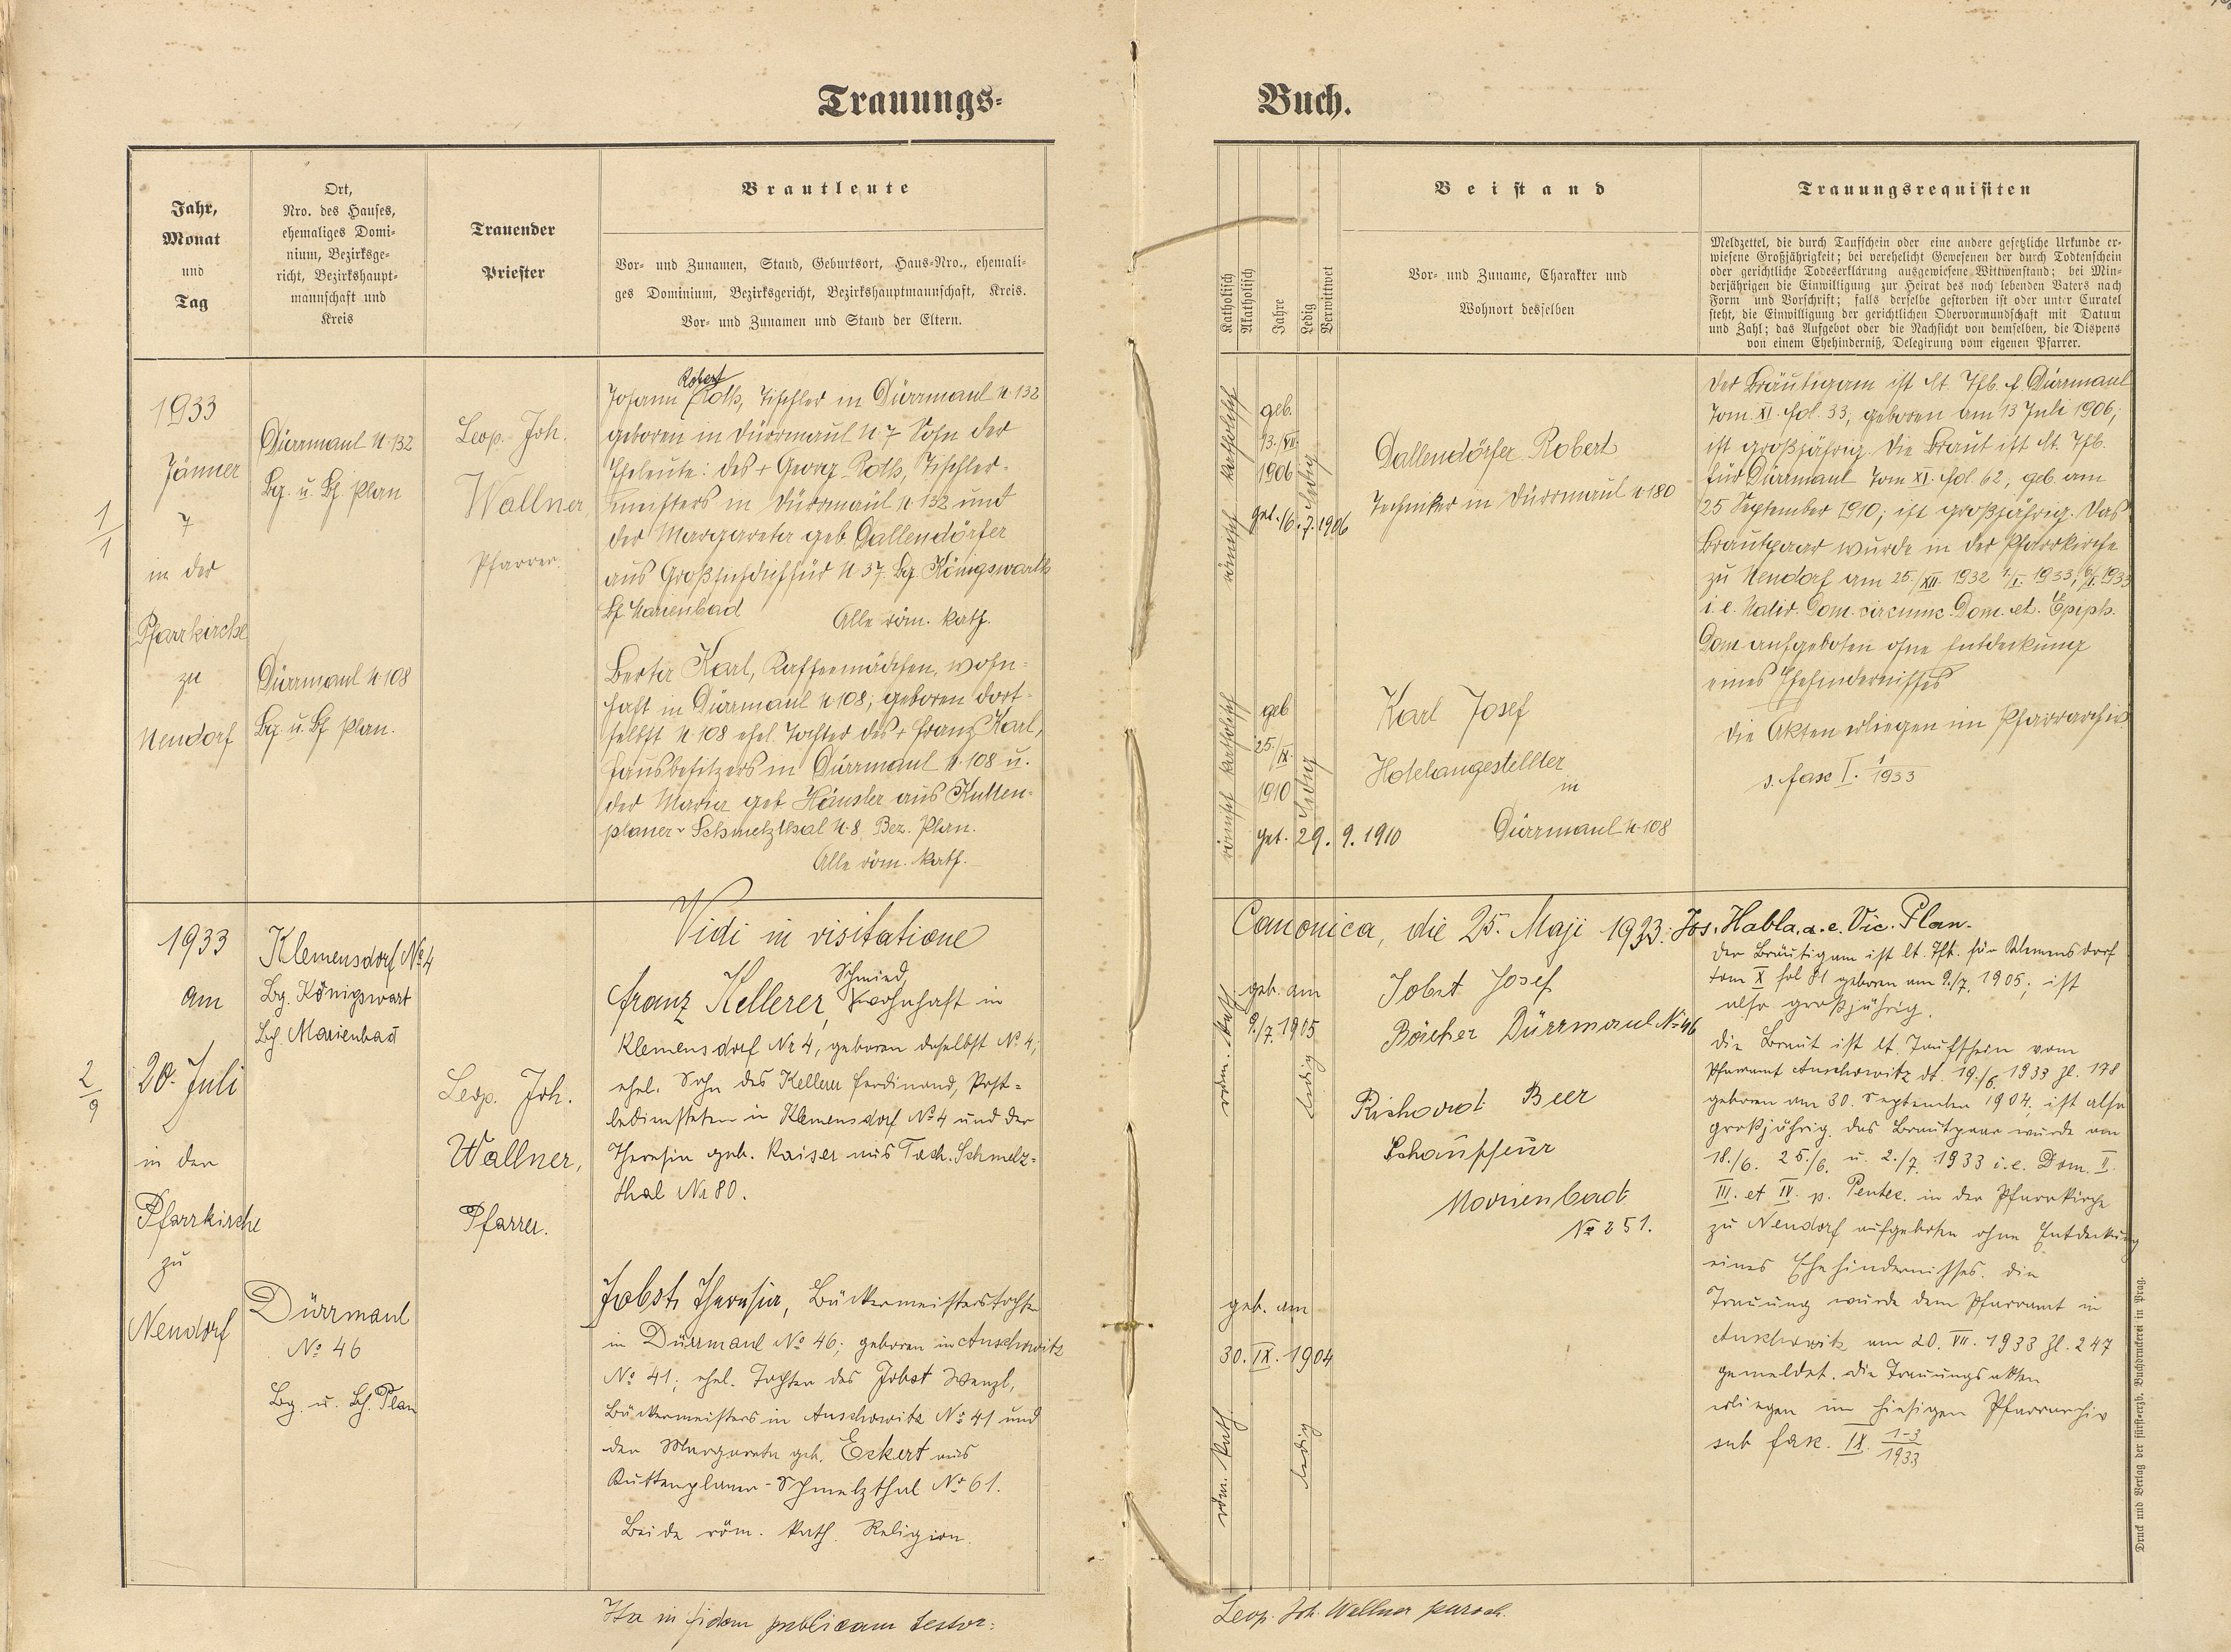 Trauungs-
Buch.
Jahr,
Monat
und
Tag
Ort,
Nro. des Hauses,
ehemaliges Domi-
nium, Bezirksge-
richt, Bezirkshaupt-
mannschaft und
Kreis
Trauender
Priester
Brautleute
Vor- und Zunamen, Stand, Geburtsort, Haus-Nro., ehemali-
ges Dominium, Bezirksgericht, Bezirkshauptmannschaft, Kreis.
Vor- und Zunamen und Stand der Eltern.
Katholisch
Akatholisch
Jahre
Ledig
Verwittwet
Beistand
Vor- und Zuname, Charakter und
Wohnort desselben
Trauungsrequisiten
Meldzettel, die durch Taufschein oder eine andere gesetzliche Urkunde er-
wiesene Großjährigkeit; bei verehelicht Gewesenen der durch Todtenschein
oder gerichtliche Todeserklärung ausgewiesene Wittwenstand; bei Min-
derjährigen die Einwilligung zur Heirat des noch lebenden Vaters nach
Form und Vorschrift; falls derselbe gestorben ist oder unter Curatel
steht, die Einwilligung der gerichtlichen Obervormundschaft mit Datum
und Zahl; das Aufgebot oder die Nachsicht von demselben, die Dispens
von einem Ehehinderniß, Delegirung vom eigenen Pfarrer.
1/1
1933
Jänner
7
in der
Pfarrkirche
zu
Neudorf
Dürrmaul N. 132
Bg. u. Bh Plan
Dürrmaul N. 108
Bg. u. Bh Plan.
Leop. Joh.
Wallner
Pfarrer.
Robert
Johann Roth, Tischler in Dürrmaul N. 132
geboren in Dürrmaul N. 7 Sohn der
Eheleute: des + Georg Roth, Tischler-
meisters in Dürrmaul N. 132 und
der Margareta geb. Dallendörfer
aus N. 37. Bg. Königswarth
Bh Marienbad Alle röm. kath.
Berta Karl, Kaffeemädchen, wohn-
haft in Dürrmaul N. 108; geboren dort-
selbst N. 108 ehel. Tochter des + Franz Karl,
Hausbesitzers in Dürrmaul N. 108 u.
der Maria geb. Häusler aus Kutten-
planer-Schmelzthal N. 8. Bez. Plan.
Alle röm. kath.
römisch katholisch
geb.
13./VII.
1906
ledig
get. 16. 7. 1906
Dallendörfer Robert
Techniker in Dürrmaul N. 180
römisch katholisch
geb
25./IX.
1910
ledig
get. 29. 9. 1910
Karl Josef
Hotelangestellter
in
Dürrmaul N. 108
Der Bräutigam ist lt. Tfb. f. Dürrmaul
Tom. XI. fol. 33, geboren am 13 Juli 1906;
ist großjährig. Die Braut ist lt. Tfb.
für Dürrmaul Tom XI. fol. 62, geb. am
25 September 1910; ist großjährig. Das
Brautpaar wurde in der Pfarrkirche
zu Neudorf am 25./XII. 1932 1./I. 1933, 6/I. 1933
i. e. Nativ. Dom. circumc. Dom. et. Epiph.
Dom aufgeboten ohne Entdeckung
eines Ehehindernisses
Die Akten erliegen im Pfarrarchiv
s. fasc I. 1/1933
Vidi in visitatione
Canonica, die 25. Maji 1933: Jos. Habla, a. e. Vic. Plan.
2/9
1933
am
20. Juli
in der
Pfarrkirche
zu
Neudorf
Klemensdorf No 4
Bg. Königswart
Bh. Marienbad
Dürrmaul
No 46
Bg. u. Bh. Plan
Leop. Joh.
Wallner,
Pfarrer.
Schmied,
Franz Kellerer, wohnhaft in
Klemensdorf Nr 4, geboren daselbst No 4;
ehel. Sohn des Kellerer Ferdinand, Post-
bediensteten in Klemensdorf No 4 und der
Theresia geb. Kaiser aus Tach. Schmelz-
thal Nr 80.
Jobst Theresia, Bäckermeisterstochter
in Dürrmaul No 46; geboren in Auschowitz
No 41; ehel. Tochter des Jobst Wenzl,
Bäckermeisters in Auschowitz No 41 und
der Margareta geb. Eckert aus
Kuttenplaner-Schmelzthal No 61.
Beide röm. kath. Religion.
röm. kath
geb. am
9./7. 1905
ledig
Jobst Josef
Bäcker Dürrmaul No 46
Richard Beer
Schauffeur
Marienbad
No 251.
geb. am
30. IX. 1904
röm. kath
ledig
Der Bräutigam ist lt. Tfb. für Klemensdorf
tom X fol 81 geboren am 9./7. 1905; ist
also großjährig.
Die Braut ist lt. Taufschein vom
Pfarramt Auschowitz dt. 19./6. 1933 Zl. 178
geboren am 30. September 1904, ist also
großjährig. Das Brautpaar wurde am
18./6. 25./6. u. 2./7. 1933 i. e. Dom. II.
III. et IV. p. Pentec. in der Pfarrkirche
zu Neudorf aufgeboten ohne Entdeckung
eines Ehehindernisses. Die
Trauung wurde dem Pfarramt in
Auschowitz am 20. VII. 1933 Zl. 247
gemeldet. Die Trauungsakten
erliegen im hiesigen Pfarrarchiv
sub fasc. IX. 1-3/1933
Ita in fidem publicam testor:
Leop. Joh. Wallner paroch.
Druck und Verlag der fürst-erzb. Buchdruckerei in Prag.